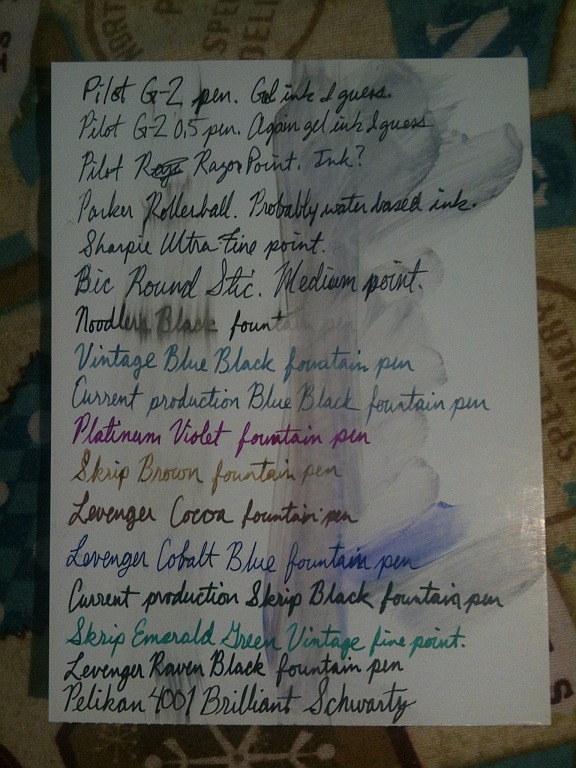 Pilot G-2 pen. Gel ink I guess.
Pilot G-2 0.5 pen. Again gel ink I guess
Pilot Razor Point. Ink?
Parker Rollerball. Probably water based ink.
Sharpie Ultra-Fine point.
Bic Round Stic. Medium point.
Noodlers Black fountain pen
Vintage Blue Black fountain pen
Current production Blue Black fountain pen
Platinum Violet fountain pen
Skrip Brown fountain pen
Levenger Cocoa fountain pen
Levenger Cobalt Blue fountain pen
Current production Skrip Black fountain pen
Skrip Emerald Green Vintage fine point.
Levenger Raven Black fountain pen
Pelikan 4001 Brilliant Schwartz